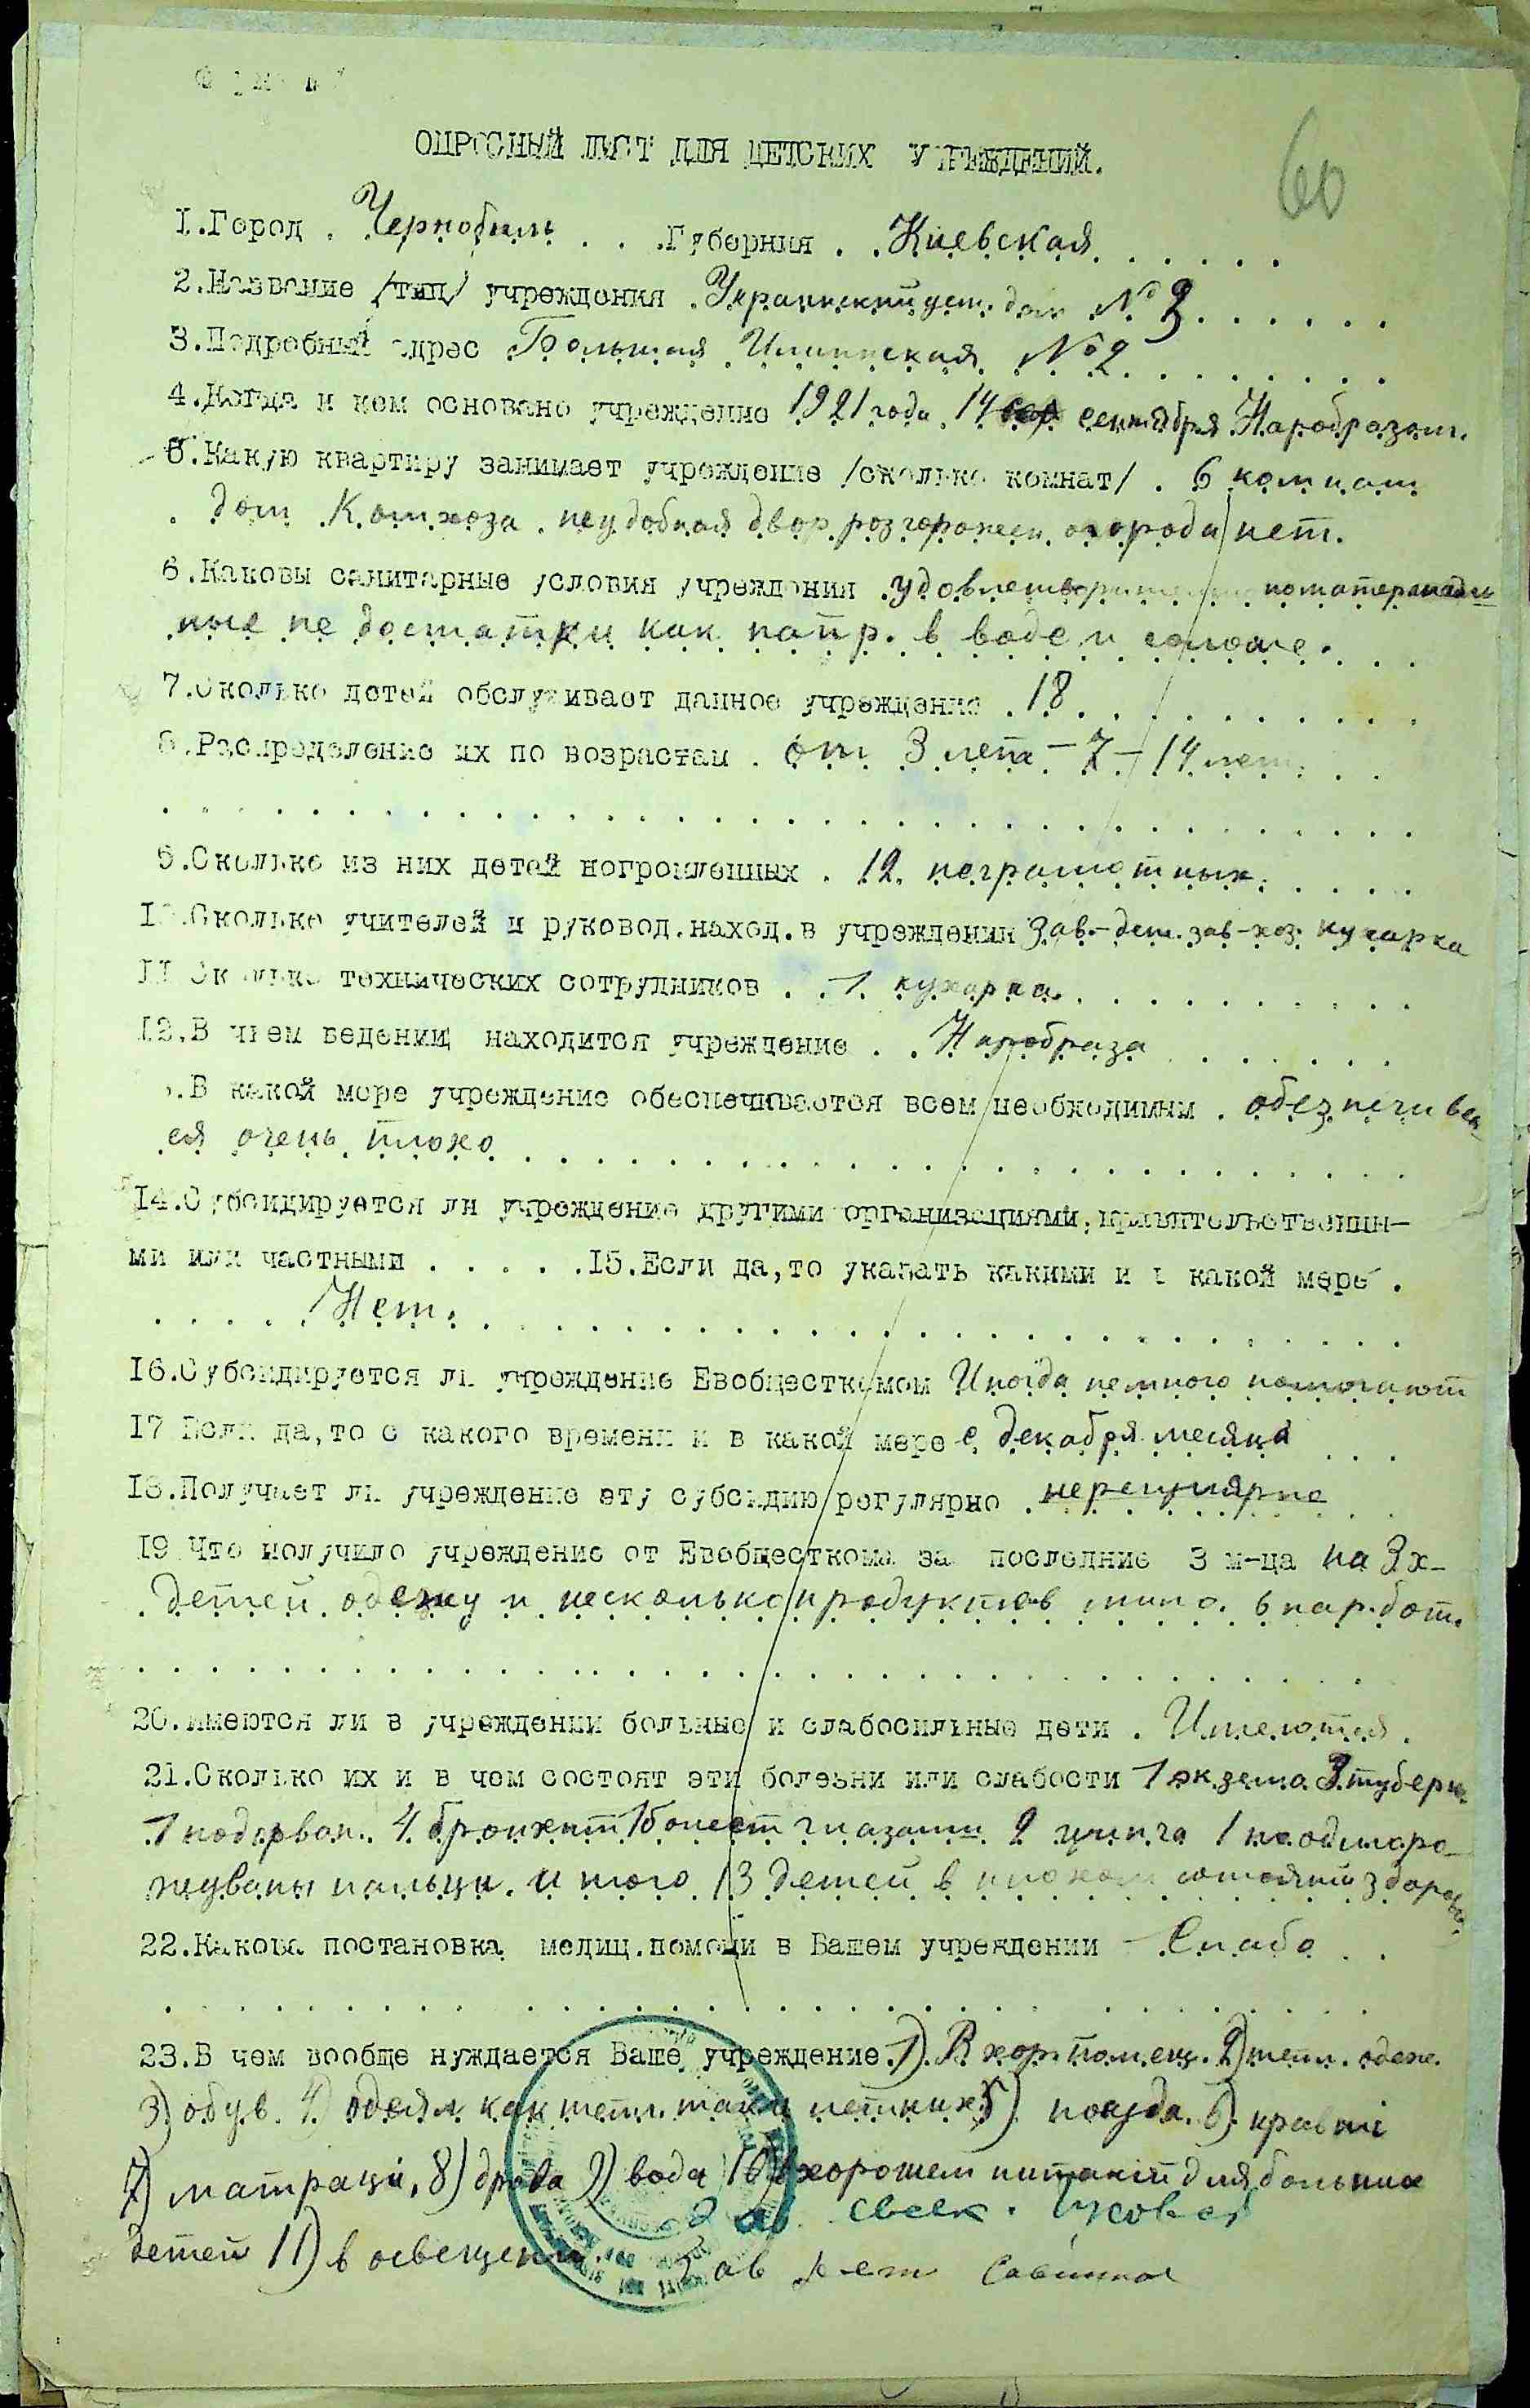 60
ОПРОСНЫЙ ЛИСТ ДЛЯ ДЕТСКИХ УЧРЕЖДЕНИЙ.
1.Город . Чернобыль . . .Губерния . . Киевская . . . . . .
2.Название /тип/ учреждения . Украинский дет. дом № 3 . . . . . .
3.Подробный адрес Большая Ильинская № 2 . . . . . . . .
4.Когда и кем основано учреждение 1921 года 14 сентября Наробразом.
5.Какую квартиру занимает учреждение /сколько комнат/ . 6 комнат
. дом Комхоза неудобная двор розгорожен огорода нет.
6.Каковы санитарные условия учреждения .
ные не достатки как напр. в воде и соломе. . . .
7.Сколько детей обслуживает данное учреждение . 18 . . . . . . . . . .
8.Распределение их по возрастам . от 3 лет – 7 – 14 лет. . .
9.Сколько из них детей погромленных . 12 неграмотных. . . . .
10.Сколько учителей и руковод.наход.в учреждении Зав.-дет. зав-хоз. кухарка
11 Сколько технических сотрудников . . 1 кухарка. . . . . . . . . .
12.В чьем ведении находится учреждение . . Наробраза . . . . . .
.В какой мере учреждение обеспечивается всем необходимым . обезпечивает
ся очень плохо . . . . . . . . . . . . . . . . . . . . . . . . .
14.Субсидируется ли учреждение другими организациями,правительственны-
ми или частными . . . . . .15.Если да,то указать какими и в какой мере .
. . . . . Нет. . . . . . . . . . . . . . . . . . . . . . . . . . .
16.Субсидируется ли учреждение Евобщесткомом Иногда немного помогают
17 Если да,то с какого времени и в какой мере с декабря месяца . . .
18.Получает ли учреждение эту субсидию регулярно . нерегулярно
19 Что получило учреждение от Евобщесткома за последние 3 м-ца на 3х-
. детей одежу и несколько продуктов 6 пар.бот.
20.Имеются ли в учреждении больные и слабосильные дети . Имеются.
21.Сколько их и в чем состоят эти болезни или слабости 1 экзема 3 туберк.
1 4 бронхит 1 болеет глазами 2 цинга 1
пальцы. итого 13 детей в плохом состоянии здоровья.
22.Какова постановка медиц.помощи в Вашем учреждении – Слабо . .
23.В чем вообще нуждается Ваше учреждение. 1) В хор. помещ. 2) тепл. одеж.
3) обув. 4) одеял как тепл. так и летних 5) посуда. 6) кравті
7) матраці, 8) дрова 9) вода 10) в хорошем питаніи для больных
детей 11) в освещении.
Зав дет